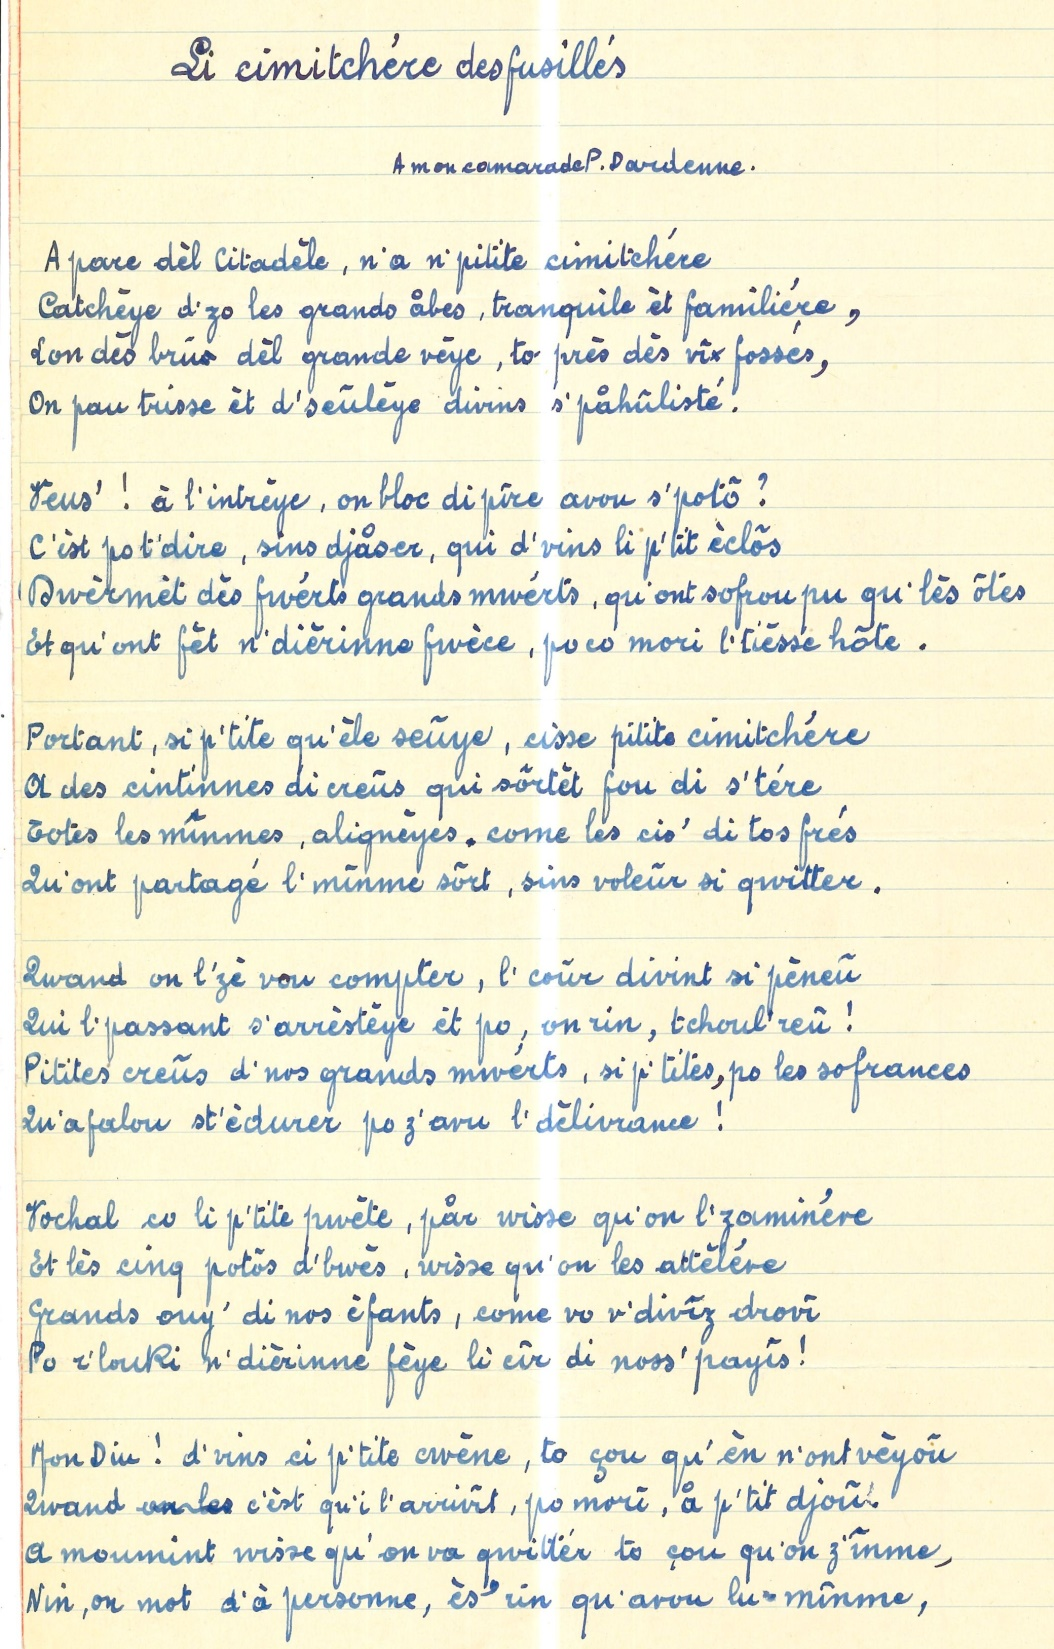 Li cimitchére des fusillés
A mon camarade P. Dardenne.
A pare dèl Citadèle, n'a n'pitite cimitchére
Catchèye d'zo les grands åbes, tranquile èt familiére,
Lon dès brûs dèl grande vèye, to près dès vîx fossés,
On pau trisse èt d'seûlèye divins s'påhûlisté.
Veus' ! à l'intrèye, on bloc di pîre avou s'potô ?
C'èst po t'dire, sins djåser, qui d'vins li p'tit èclôs
Dwèrmèt dès fwérts grands mwérts, qu'ont sofrou pu qu'lès ôtes
Et qu'ont fêt n'dièrinne fwèce, po co mori l'tièsse hôte.
Portant, si p'tite qu'èle seûye, cisse pitite cimitchére
A des cintinnes di creûs qui sôrtèt fou di s'tére
Totes les mînmes, alignèyes, come les cis' di tos frés
Qu'ont partagé l'mînme sôrt, sins voleûr si qwitter.
Qwand on l'zè vou compter, l'coûr divint si pèneû
Qui l'passant s'arrèstèye èt po, on rin, tchoul'reû !
Pitites creûs d'nos grands mwérts, si p'tites, po les sofrances
Qu'a falou st'èdurer po z'avu l'dèlivrance !
Vochal co li p'tite pwète, pår wisse qu'on l'zaminére
Et lès cinq potôs d'bwès, wisse qu'on les attèlére
Grands ouy' di nos èfants, come vo v'divîz drovî
Po r'louki n'dièrinne fèye li cîr di noss' payîs !
Mon Diu ! d'vins ci p'tite cwène, to çou qu'èn n'ont vèyoû
Qwand c'èst qu'i l'arrivît, po morî, å p'tit djoû.
A moumint wisse qu'on va qwitter to çou qu'on z'inme,
Nin, on mot d'à personne, ès' rin qu'avou lu-mînme,